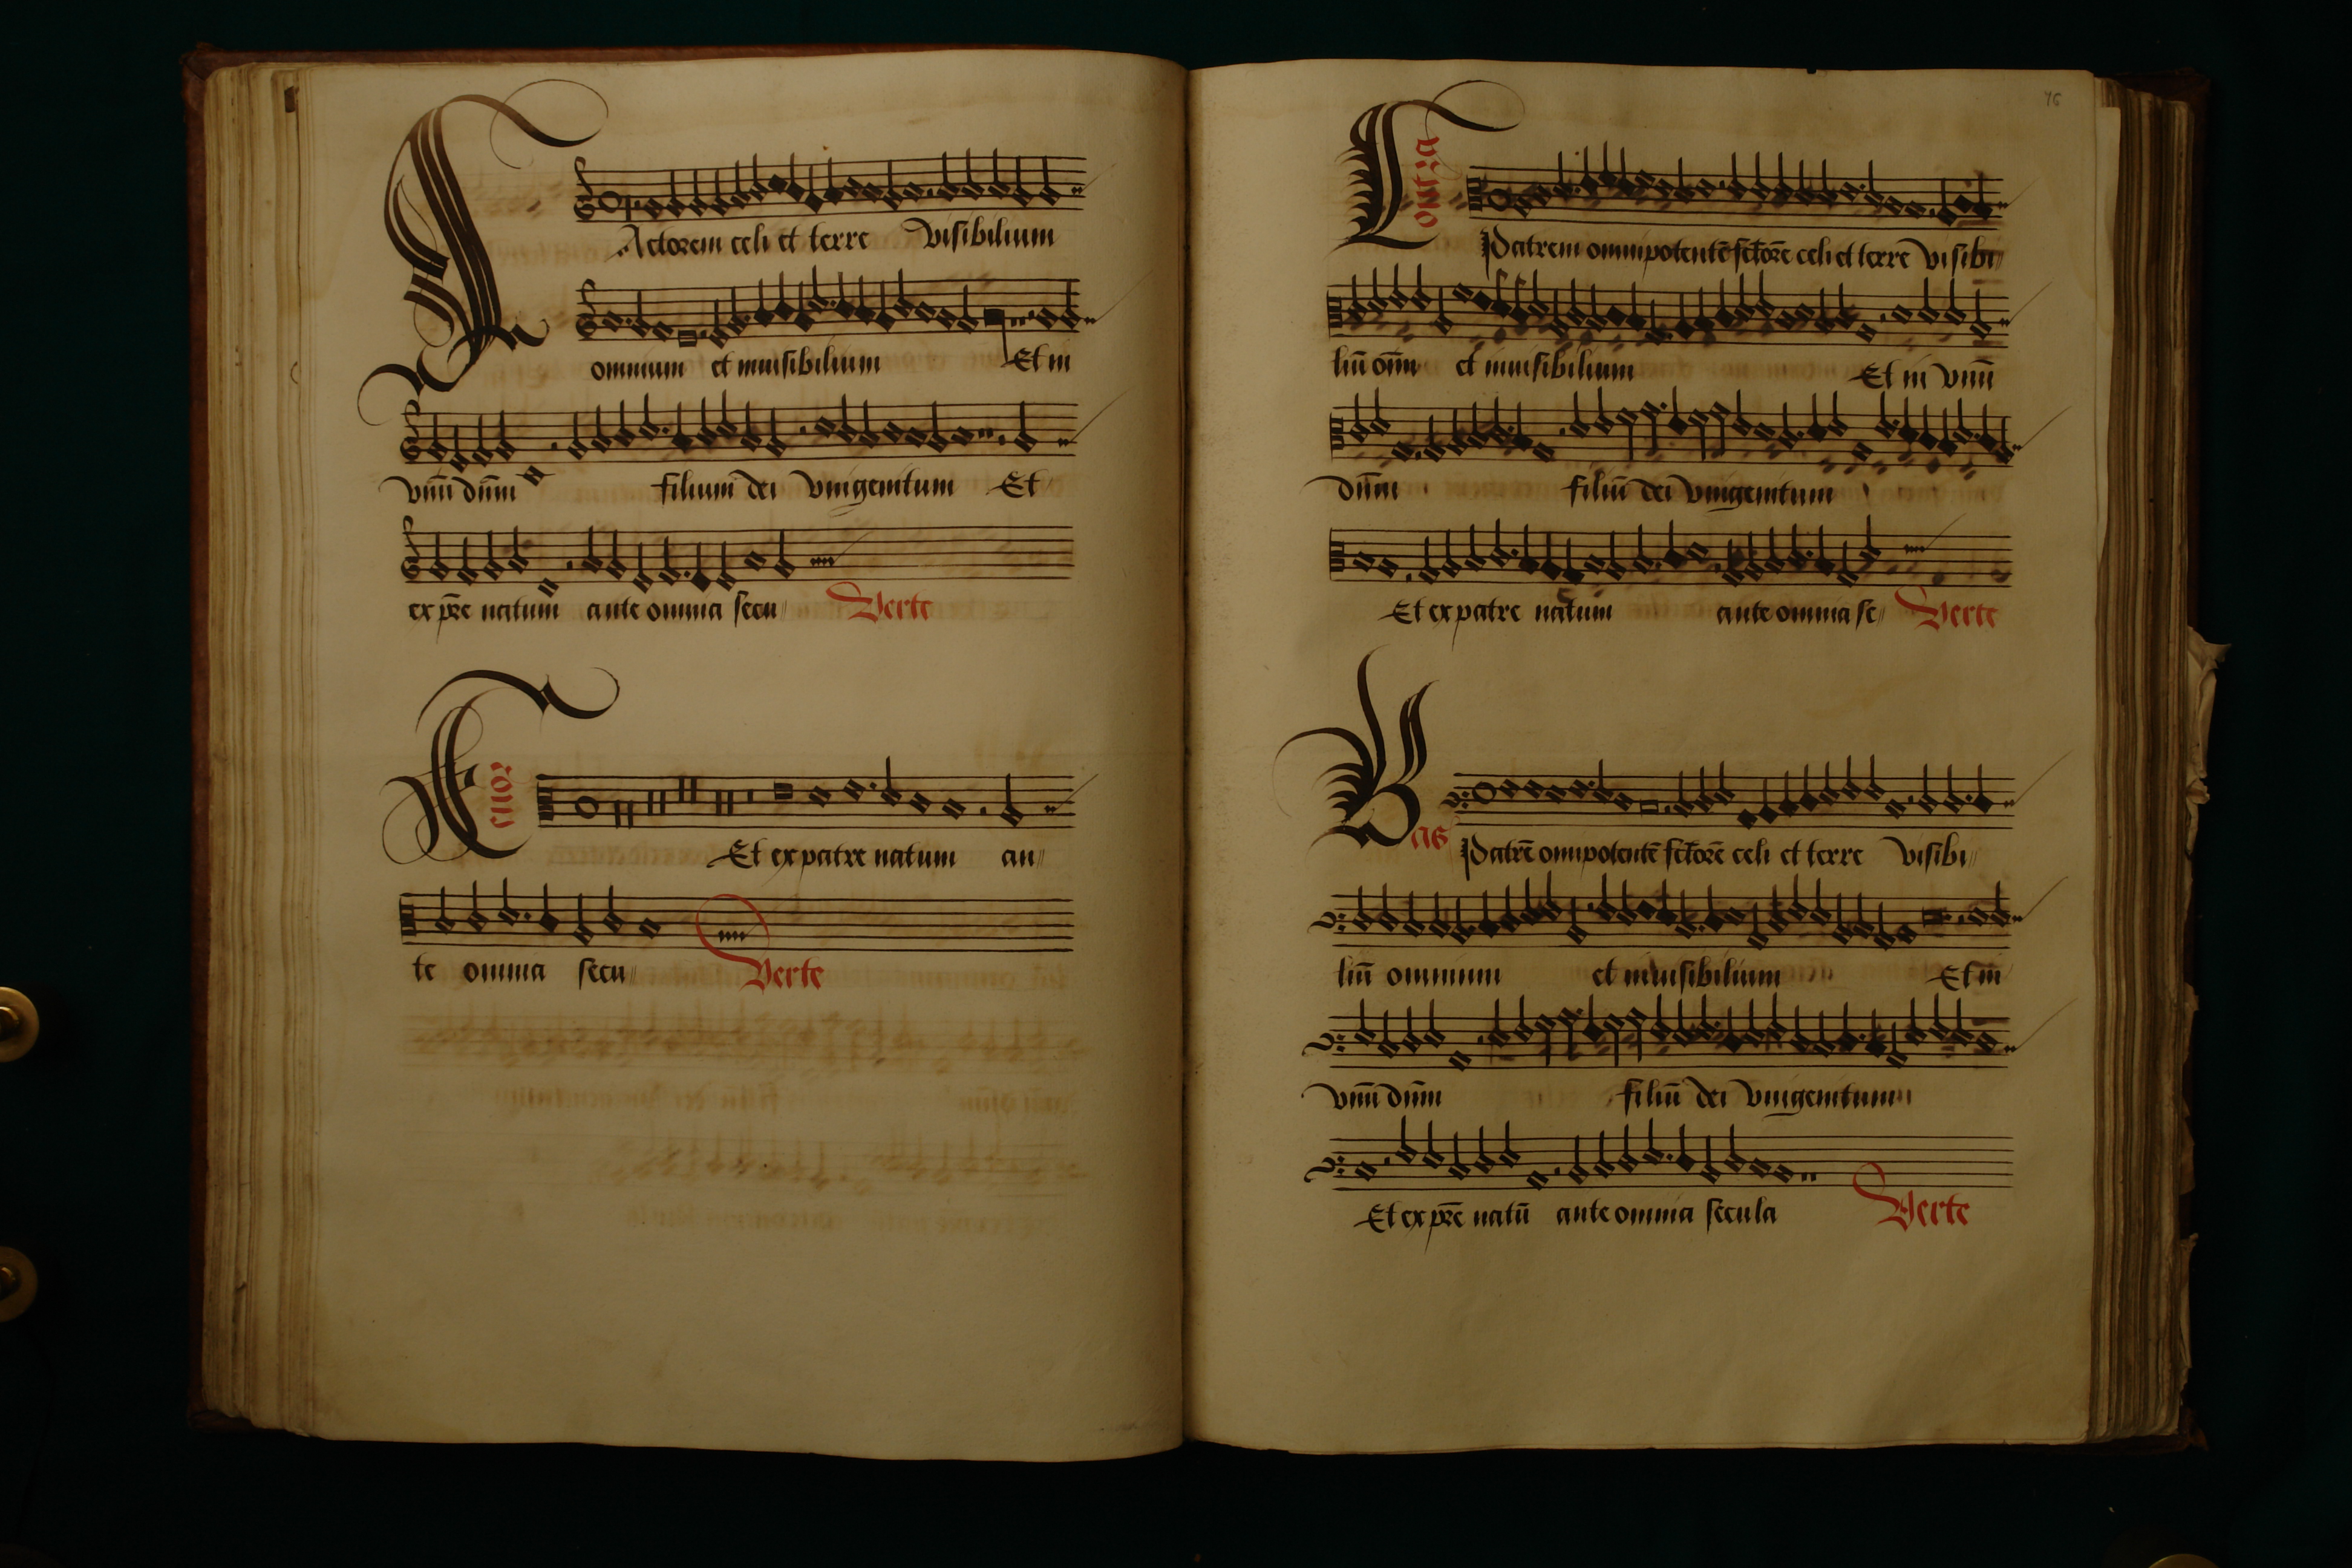 FActorem celi et terre Visibilium
omnium et inuisibilium Et in
vnū dn̄m filium dei vnigenitum Et
ex pr̄e natum ante omnia secu//
Verte
Tenor
Et ex patre natum an//
te omnia secu//
Verte
76
Contra
Patrem omnipotentē fctōrē celi et terre Visibi//
liū om̄ et inuisibilium Et in vnū
dn̄m filiū dei vnigenitum
Et ex patre natum ante omnia se//
Verte
Bas
Patrē omnipotentē fctōrē celi et terre visibi//
liū omnium et inuisibilium Et in
vnū dn̄m filiū dei vnigenitum
Et ex pr̄e natū ante omnia secula
Verte